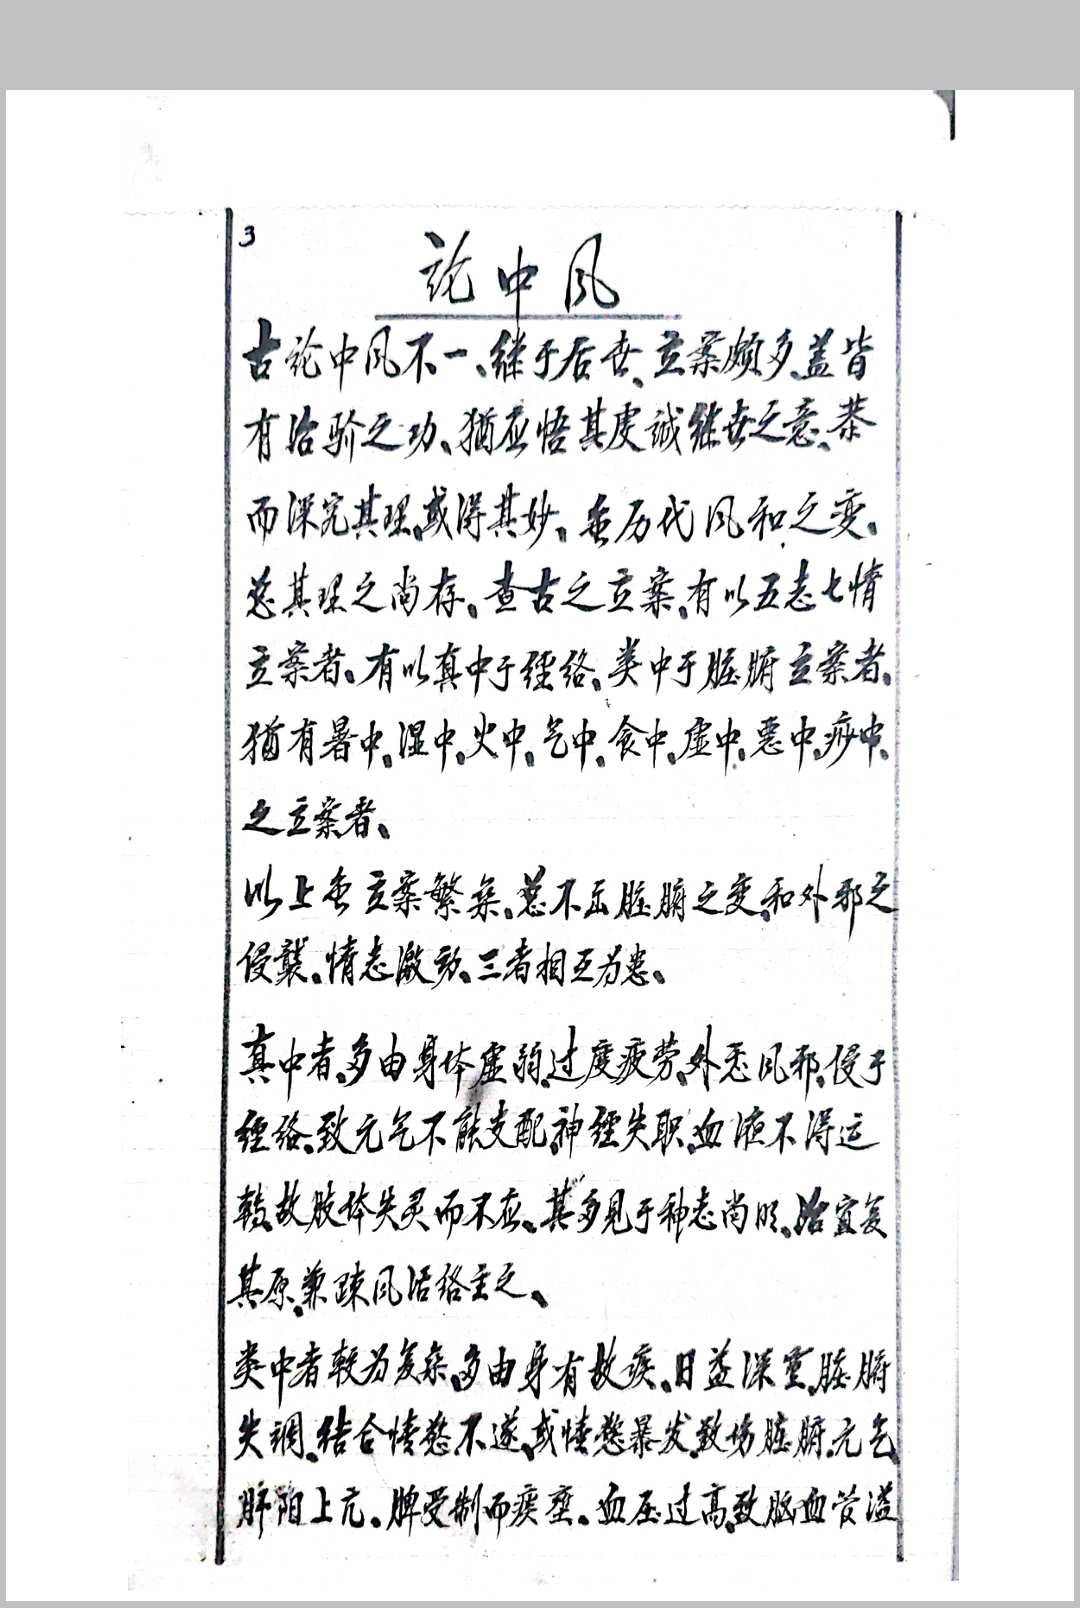 3
论中风
古论中风不一、继于后世、立案颇多、盖皆
有治验之功、犹应悟其虔诚继世之意、恭
而深究其理、或得其妙、虽历代风和之变、
总其理之尚存、查古之立案、有以五志七情
立案者、有以真中于经络、类中于脏腑立案者、
犹有暑中、湿中、火中、气中、食中、虚中、恶中、痧中、
之立案者、
以上虽立案繁杂、总不出脏腑之变、和外邪之
侵袭、情志激动、三者相互为患、
真中者、多由身体虚弱、过度疲劳、外恶风邪、侵于
经络、致元气不能支配、神经失职、血液不得运
转、故肢体失灵而不应、其多见于神志尚明、治宜复
其原、兼疎风活络主之、
类中者较为复杂、多由身有故疾、日益深重、脏腑
失调、结合情慾不遂、或情慾暴发、致伤脏腑元气
肝阳上亢、脾受制而痰壅、血压过高、致脑血管溢